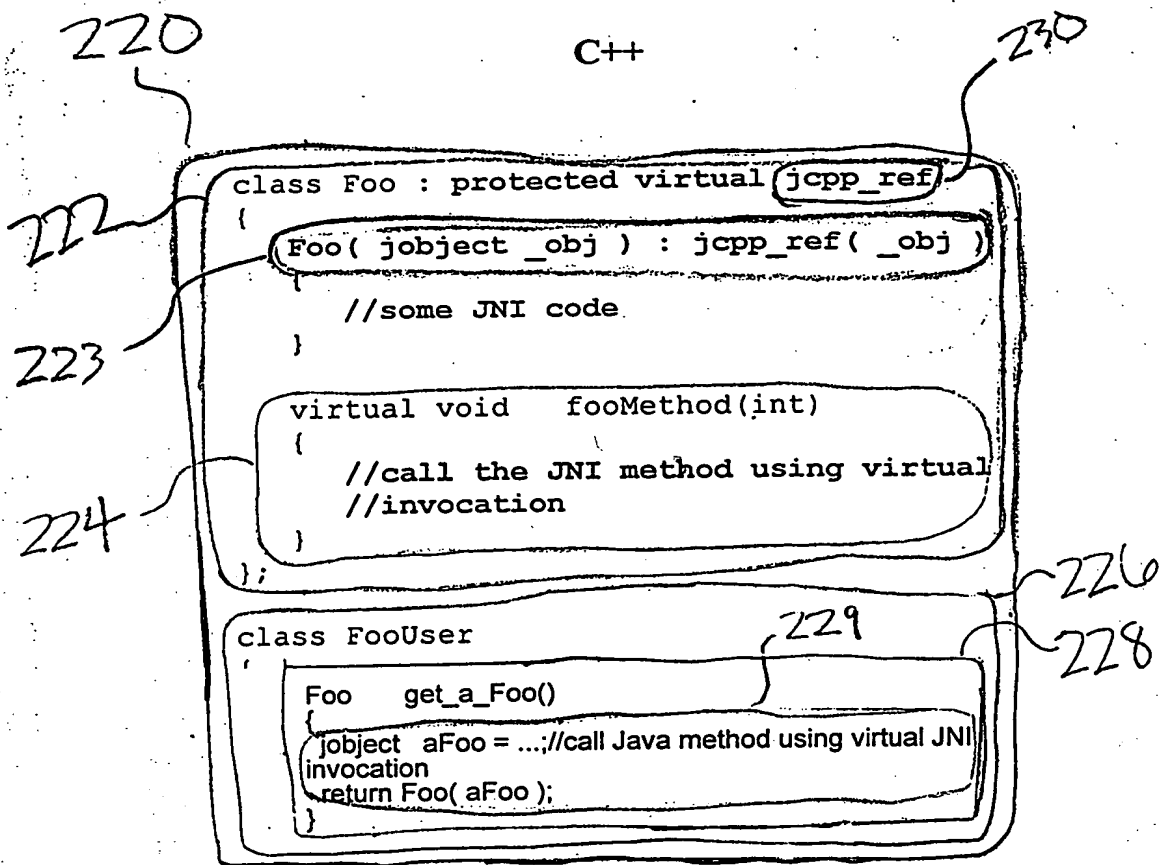 220
C++
230
class Foo : protected virtual jcpp_ref
222
{
Foo( jobject _obj ) : jcpp_ref( _obj )
{
//some JNI code
223
}
virtual void fooMethod(int)
{
//call the JNI method using virtual
//invocation
224
}
};
226
class FooUser
229
228
{
Foo get_a_Foo()
{
jobject aFoo = ...;//call Java method using virtual JNI
invocation
return Foo( aFoo );
}